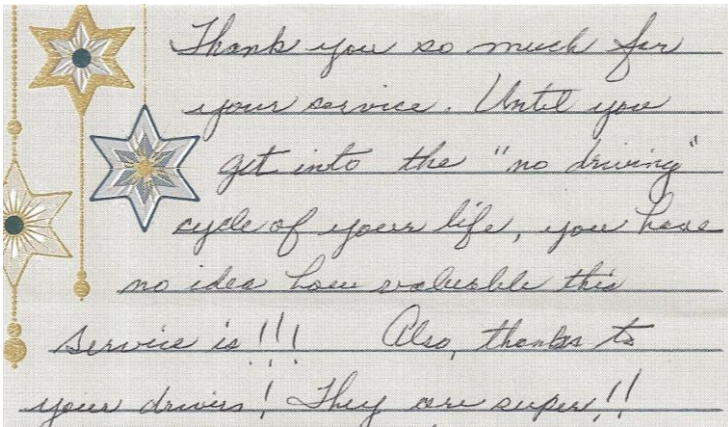 Thank you so much for
your service. Until you
get into the "no driving"
cycle of your life, you have
no idea how valuable this
service is!!! Also, thanks to
your drivers! They are super!!